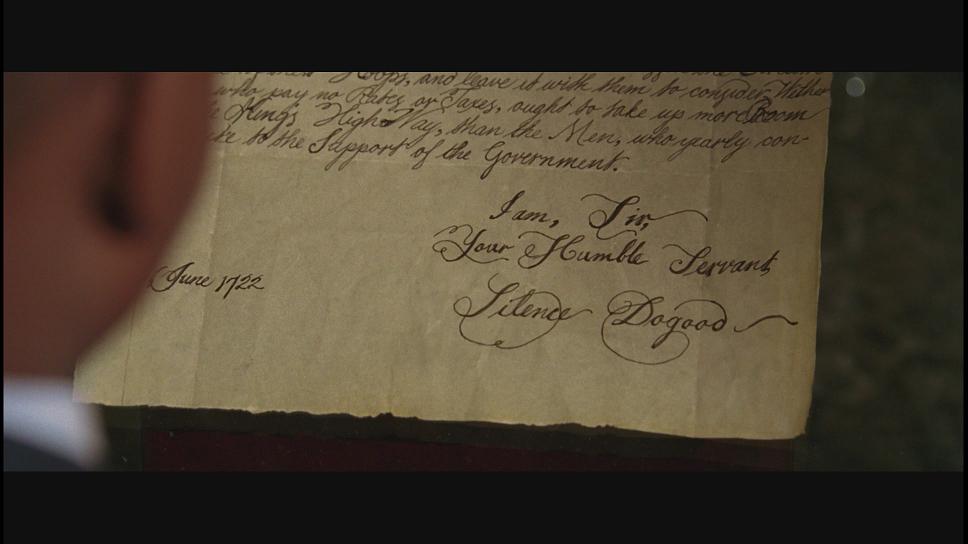 Hoops, and leave it with them to consider, Wether
who pay no Rates or Taxes, ought to take up more Room
King's High-Way, than the Men, who yearly con-
to the Support of the Government.
I am, Sir,
Your Humble Servant,
Silence Dogood
June 1722